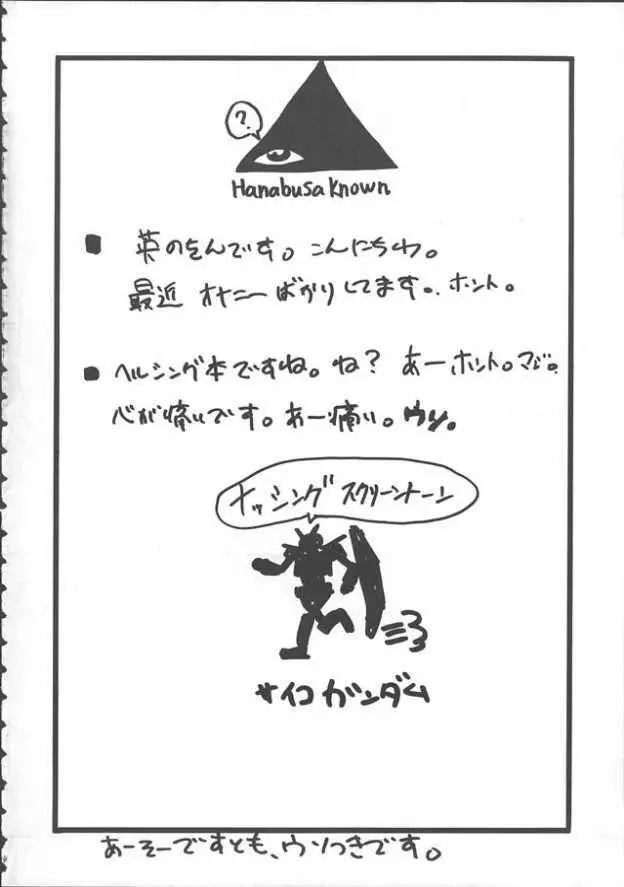 ?
Hanabusa Known
■ 英のをんです。こんにちわ。
最近 オナニーばかりしてます。ホント。
■ ヘルシング本ですね。ね? あーホント。マジ。
心が痛いです。あー痛い。ウソ。
ナッシングスクリーントーン
サイコガンダム
あーそーですとも、ウソつきです。